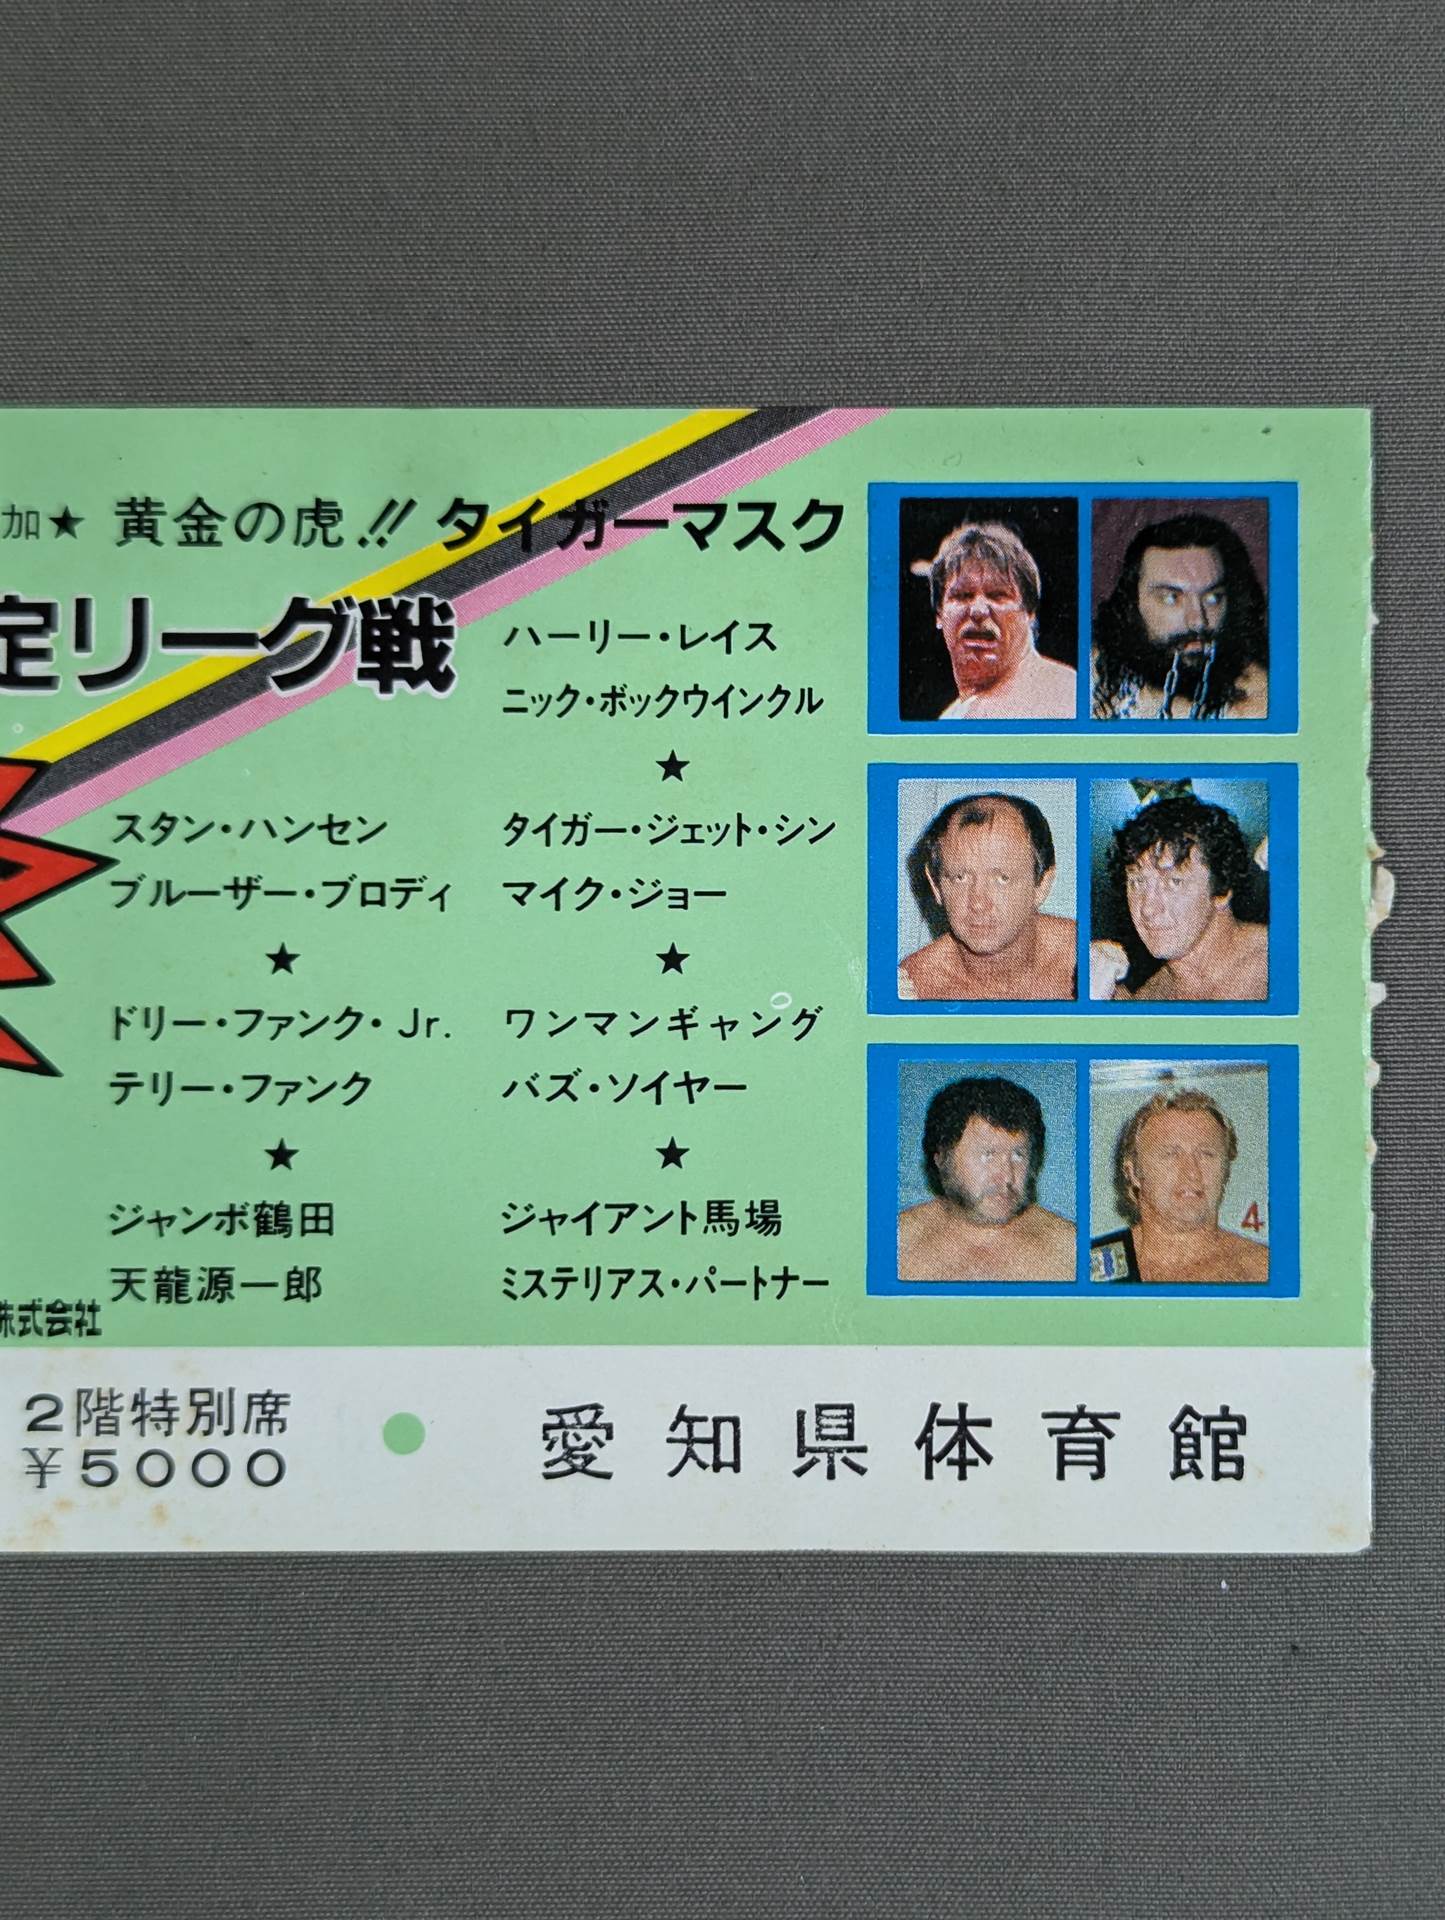 加★ 黄金の虎!! タイガーマスク
定リーグ戦
スタン・ハンセン
ブルーザー・ブロディ
★
ドリー・ファンク・Jr.
テリー・ファンク
★
ジャンボ鶴田
天龍源一郎
ハーリー・レイス
ニック・ボックウインクル
★
タイガー・ジェット・シン
マイク・ジョー
★
ワンマンギャング
バズ・ソイヤー
★
ジャイアント馬場
ミステリアス・パートナー
4
株式会社
2階特別席
¥5000
愛知県体育館